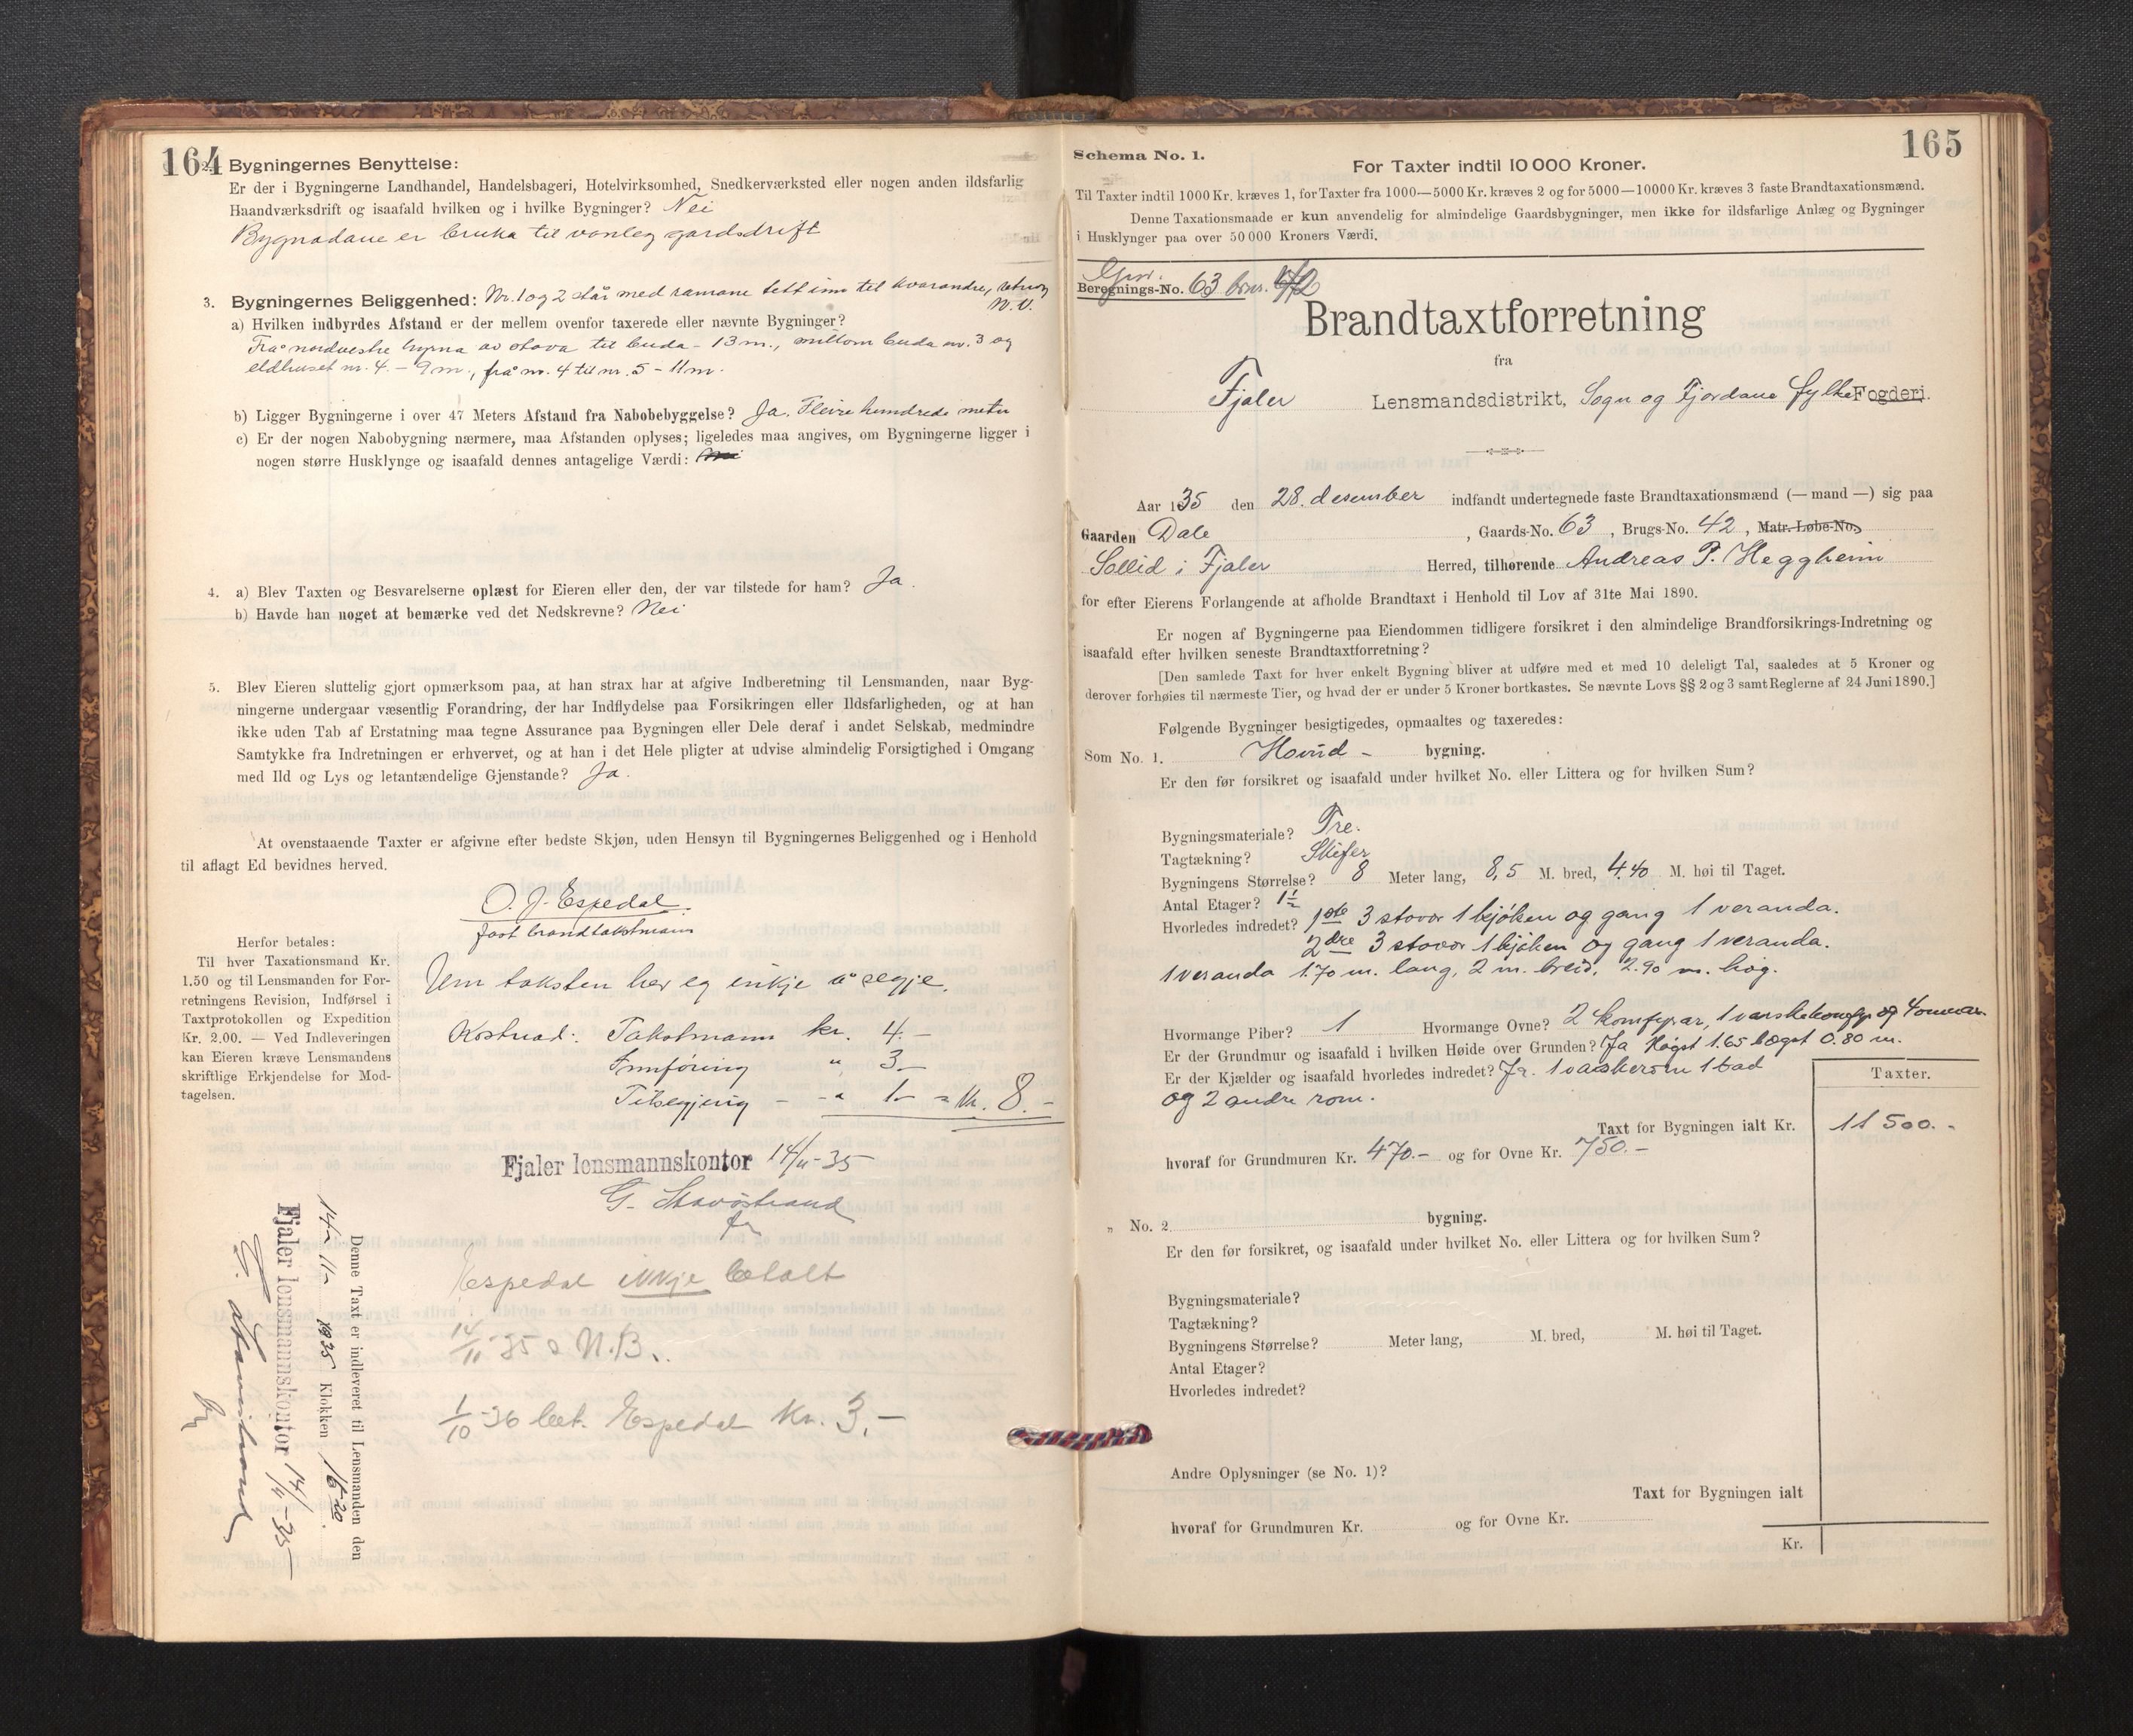 164
2. Bygningernes Benyttelse:
Er der i Bygningerne Landhandel, Handelsbageri, Hotelvirksomhed, Snedkerværksted eller nogen anden ildsfarlig
Haandværksdrift og isaafald hvilken og i hvilke Bygninger? Nei
Bygnadane er bruka til vanleg gardsdrift
3. Bygningernes Beliggenhed: Nr. 1 og 2 står med ramane tett inn til kvarandre, retning
N.V.
a) Hvilken indbyrdes Afstand er der mellem ovenfor taxerede eller nævnte Bygninger?
Frå nordvestre hyrna av stova til buda - 13 m., millom buda nr. 3 og
eldhuset nr. 4. - 9 m., frå nr. 4 til nr. 5 - 11 m.
b) Ligger Bygningerne i over 47 Meters Afstand fra Nabobebyggelse? Ja. Fleire hundrede meter
c) Er der nogen Nabobygning nærmere, maa Afstanden oplyses; ligeledes maa angives, om Bygningerne ligger i
nogen større Husklynge og isaafald dennes antagelige Værdi: Nei
4. a) Blev Taxten og Besvarelserne oplæst for Eieren eller den, der var tilstede for ham? Ja
b) Havde han noget at bemærke ved det Nedskrevne? Nei
5. Blev Eieren sluttelig gjort opmærksom paa, at han strax har at afgive Indberetning til Lensmanden, naar Byg-
ningerne undergaar væsentlig Forandring, der har Indflydelse paa Forsikringen eller Ildsfarligheden, og at han
ikke uden Tab af Erstatning maa tegne Assurance paa Bygningen eller Dele deraf i andet Selskab, medmindre
Samtykke fra Indretningen er erhvervet, og at han i det Hele pligter at udvise almindelig Forsigtighed i Omgang
med Ild og Lys og letantændelige Gjenstande? Ja.
At ovenstaaende Taxter er afgivne efter bedste Skjøn, uden Hensyn til Bygningernes Beliggenhed og i Henhold
til aflagt Ed bevidnes herved.
O. J. Espedal.
fast brandtakstmann
Herfor betales:
Til hver Taxationsmand Kr.
1.50 og til Lensmanden for For-
retningens Revision, Indførsel i
Taxtprotokollen og Expedition
Kr. 2.00. — Ved Indleveringen
kan Eieren kræve Lensmandens
skriftlige Erkjendelse for Mod-
tagelsen.
Um taksten her eg inkje å segje.
Kostnad: Takstmann kr. 4.-
Innföring " 3-
Tilsegjing - - " 1- = Kr. 8.-
Fjaler lensmannskontor 14/11-35
G. Stavøstrand
fm
Espedal ikkje betalt
14/11-35 N.B.
1/10-36 bet. Espedal Kr. 3.-
Denne Taxt er indleveret til Lensmanden den
14- 11- 1935 Klokken 16 20.
Fjaler lensmannskontor 14/11-35
G. Stavøstrand
fm
165
Schema No. 1.
For Taxter indtil 10 000 Kroner.
Til Taxter indtil 1000 Kr. kræves 1, for Taxter fra 1000—5000 Kr. kræves 2 og for 5000—10000 Kr. kræves 3 faste Brandtaxationsmænd.
Denne Taxationsmaade er kun anvendelig for almindelige Gaardsbygninger, men ikke for ildsfarlige Anlæg og Bygninger
i Husklynger paa over 50 000 Kroners Værdi.
Gnr.
Beregnings-No. 63 bnr. 42
Brandtaxtforretning
fra
Fjaler Lensmandsdistrikt, Sogn og Fjordane fylke Fogderi.
Aar 1935 den 28. desember indfandt undertegnede faste Brandtaxationsmænd (— mand —) sig paa
Gaarden Dale, Gaards-No. 63, Brugs-No. 42, Matr. Løbe-No.
Sollid i Fjaler Herred, tilhørende Andreas P. Heggheim
for efter Eierens Forlangende at afholde Brandtaxt i Henhold til Lov af 31te Mai 1890.
Er nogen af Bygningerne paa Eiendommen tidligere forsikret i den almindelige Brandforsikrings-Indretning og
isaafald efter hvilken seneste Brandtaxtforretning?
[Den samlede Taxt for hver enkelt Bygning bliver at udføre med et med 10 deleligt Tal, saaledes at 5 Kroner og
derover forhøies til nærmeste Tier, og hvad der er under 5 Kroner bortkastes. Se nævnte Lovs §§ 2 og 3 samt Reglerne af 24 Juni 1890.]
Følgende Bygninger besigtigedes, opmaaltes og taxeredes:
Som No. 1. Hovud - bygning.
Er den før forsikret og isaafald under hvilket No. eller Littera og for hvilken Sum?
Bygningsmateriale? Tre.
Tagtækning? Skifer
Bygningens Størrelse? 8 Meter lang, 8,5 M. bred, 4.40 M. høi til Taget.
Antal Etager? 1½
Hvorledes indredet? 1ste 3 stover 1 kjøken og gang 1 veranda.
2dre 3 stover 1 kjøken og gang 1 veranda.
1 veranda 1.70 m. lang, 2 m. breid, 2.90 m. høg.
Hvormange Piber? 1 Hvormange Ovne? 2 komfyrar, 1 vaskekomfyr og 4 omnar.
Er der Grundmur og isaafald i hvilken Høide over Grunden? Ja Høgst 1.65 lægst 0.80 m.
Er der Kjælder og isaafald hvorledes indredet? Ja. 1 vaskerom 1 bad
og 2 andre rom.
Taxter.
Taxt for Bygningen ialt Kr. 11 500.-
hvoraf for Grundmuren Kr. 470.- og for Ovne Kr. 750.-
" No. 2. bygning.
Er den før forsikret, og isaafald under hvilket No. eller Littera og for hvilken Sum?
Bygningsmateriale?
Tagtækning?
Bygningens Størrelse? Meter lang, M. bred, M. høi til Taget.
Antal Etager?
Hvorledes indredet?
Andre Oplysninger (se No. 1)?
Taxt for Bygningen ialt
hvoraf for Grundmuren Kr. og for Ovne Kr.
Kr.